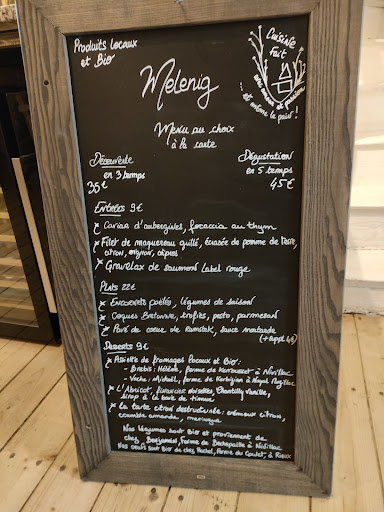 Produits Locaux
et Bio
Melenig
Cuisine
Fait
avec amour et passion
... et même le pain !
Menu au choix
à la carte
Découverte
en 3 temps
Dégustation
en 5 temps
45€
Entrées 9€
Caviar d'aubergines, foccacia au thym
Filet de maquereau grillé, écrasée de pomme de terre,
citron, oignon, câpres
Gravelax de saumon Label rouge
Plats 22€
Encornets poêlés, légumes de saison
Coques Bretonne, trofies, pesto, parmesan
Pavé de coeur de Rumsteak, sauce moutarde
Desserts 9€
Assiette de fromages Locaux et Bio:
- Brebis: Hélène, ferme de Kerouesset à Nivillac
- Vache: Mickaël, ferme de
L'Abricot, financier noisettes, Chantilly vanille,
sirop à la baie de timur
La tarte citron destructurée: crémeux citron,
crumble amande, meringue
Nos légumes sont Bio et proviennent de
chez Benjamin, Ferme de Bechepaille à Nivillac
Nos oeufs sont Bio de chez Rachel, Ferme du Goulet, à Rieux